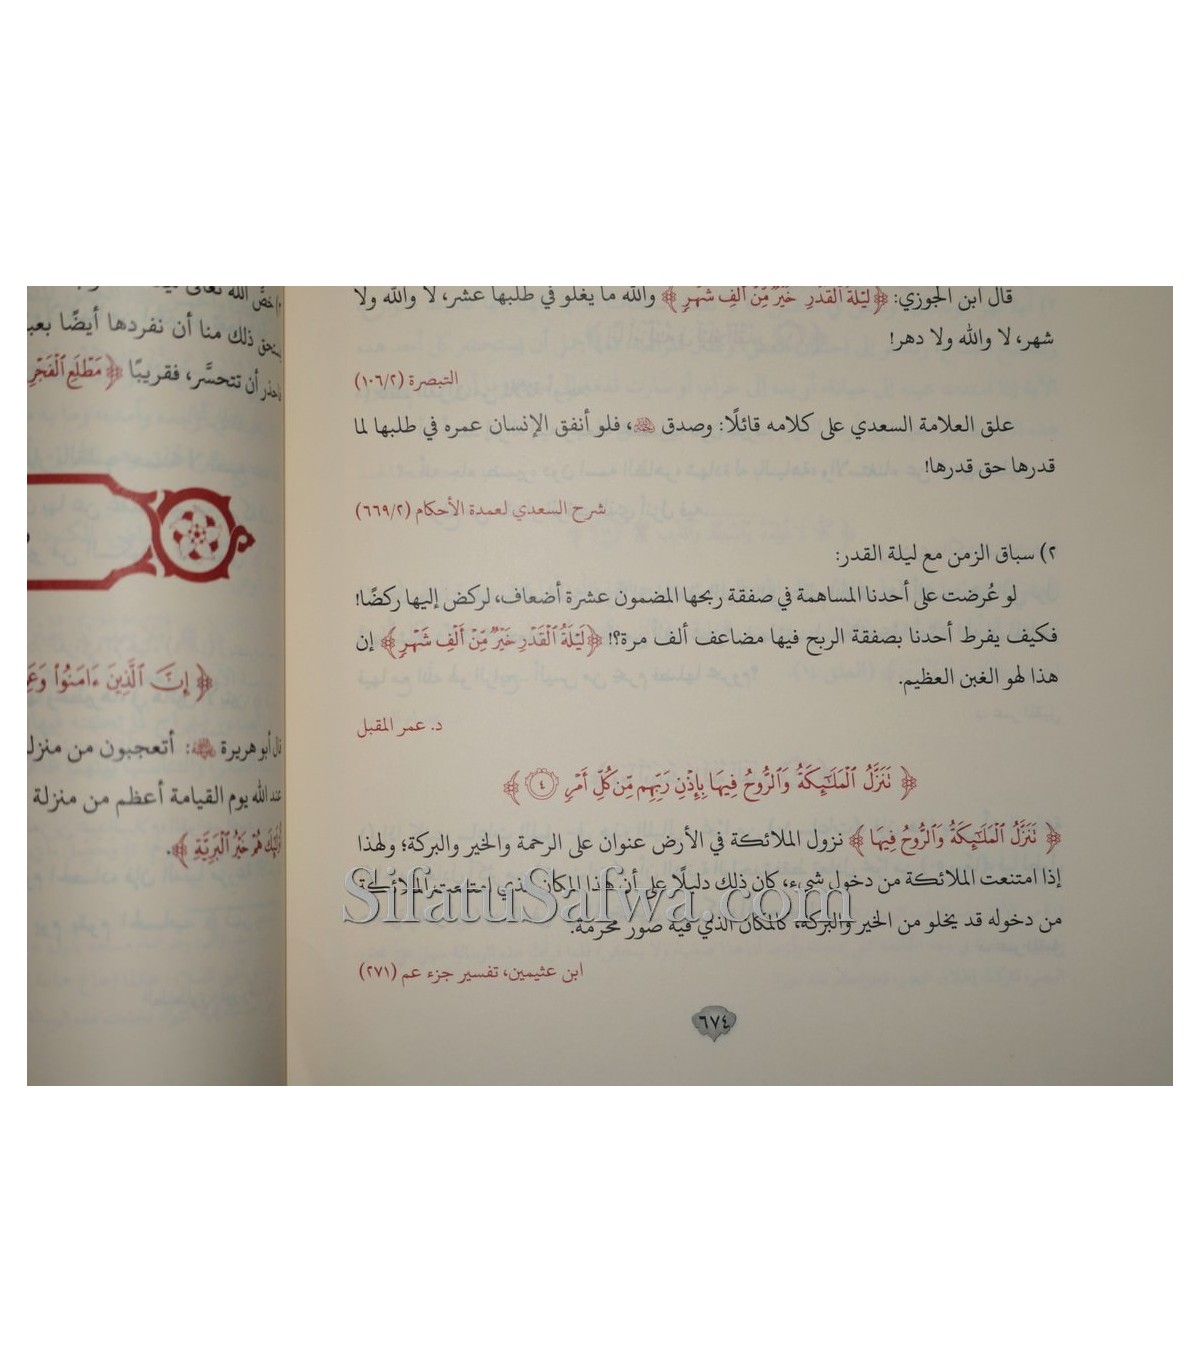 قال ابن الجوزي: ﴿لَيْلَةُ ٱلْقَدْرِ خَيْرٌ مِّنْ أَلْفِ شَهْرٍ﴾ والله ما يغلو في طلبها عشر، لا والله ولا
شهر، لا والله ولا دهر!
التبصرة (١٠٦/٢)
علق العلامة السعدي على كلامه قائلًا: وصدق، فلو أنفق الإنسان عمره في طلبها لما
قدرها حق قدرها!
شرح السعدي لعمدة الأحكام (٦٦٩/٢)
٢) سباق الزمن مع ليلة القدر:
لو عُرضت على أحدنا المساهمة في صفقة ربحها المضمون عشرة أضعاف، لركض إليها ركضًا!
فكيف يفرط أحدنا بصفقة الربح فيها مضاعف ألف مرة؟! ﴿لَيْلَةُ ٱلْقَدْرِ خَيْرٌ مِّنْ أَلْفِ شَهْرٍ﴾ إن
هذا لهو الغبن العظيم.
د. عمر المقبل
﴿ تَنَزَّلُ ٱلْمَلَٰٓئِكَةُ وَٱلرُّوحُ فِيهَا بِإِذْنِ رَبِّهِم مِّن كُلِّ أَمْرٍ ٤ ﴾
﴿ تَنَزَّلُ ٱلْمَلَٰٓئِكَةُ وَٱلرُّوحُ فِيهَا ﴾ نزول الملائكة في الأرض عنوان على الرحمة والخير والبركة؛ ولهذا
إذا امتنعت الملائكة من دخول شيء، كان ذلك دليلًا على أن هذا المكان الذي امتنعت الملائكة
من دخوله قد يخلو من الخير والبركة، كالمكان الذي فيه صور محرمة.
ابن عثيمين، تفسير جزء عم (٢٧١)
٦٧٤
SifatuSafwa.com
ذلك منا أن نفردها أيضًا
أن تتحسَّر، فقريبًا ﴿ مَطْلَعِ ٱلْفَجْرِ
﴿ إِنَّ ٱلَّذِينَ ءَامَنُوا۟
قال أبو هريرة: أتعجبون من
عند الله يوم القيامة أعظم من منزلة
أُو۟لَٰٓئِكَ هُمْ خَيْرُ ٱلْبَرِيَّةِ ﴾.